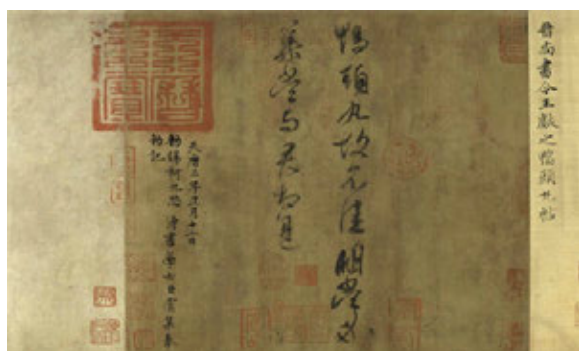 晉尚書令王獻之鴨頭丸帖
鴨頭丸故不佳明當必
集當與君相見
天曆三年正月十二日
勅賜柯九思侍書學士臣虞集奉
勅記